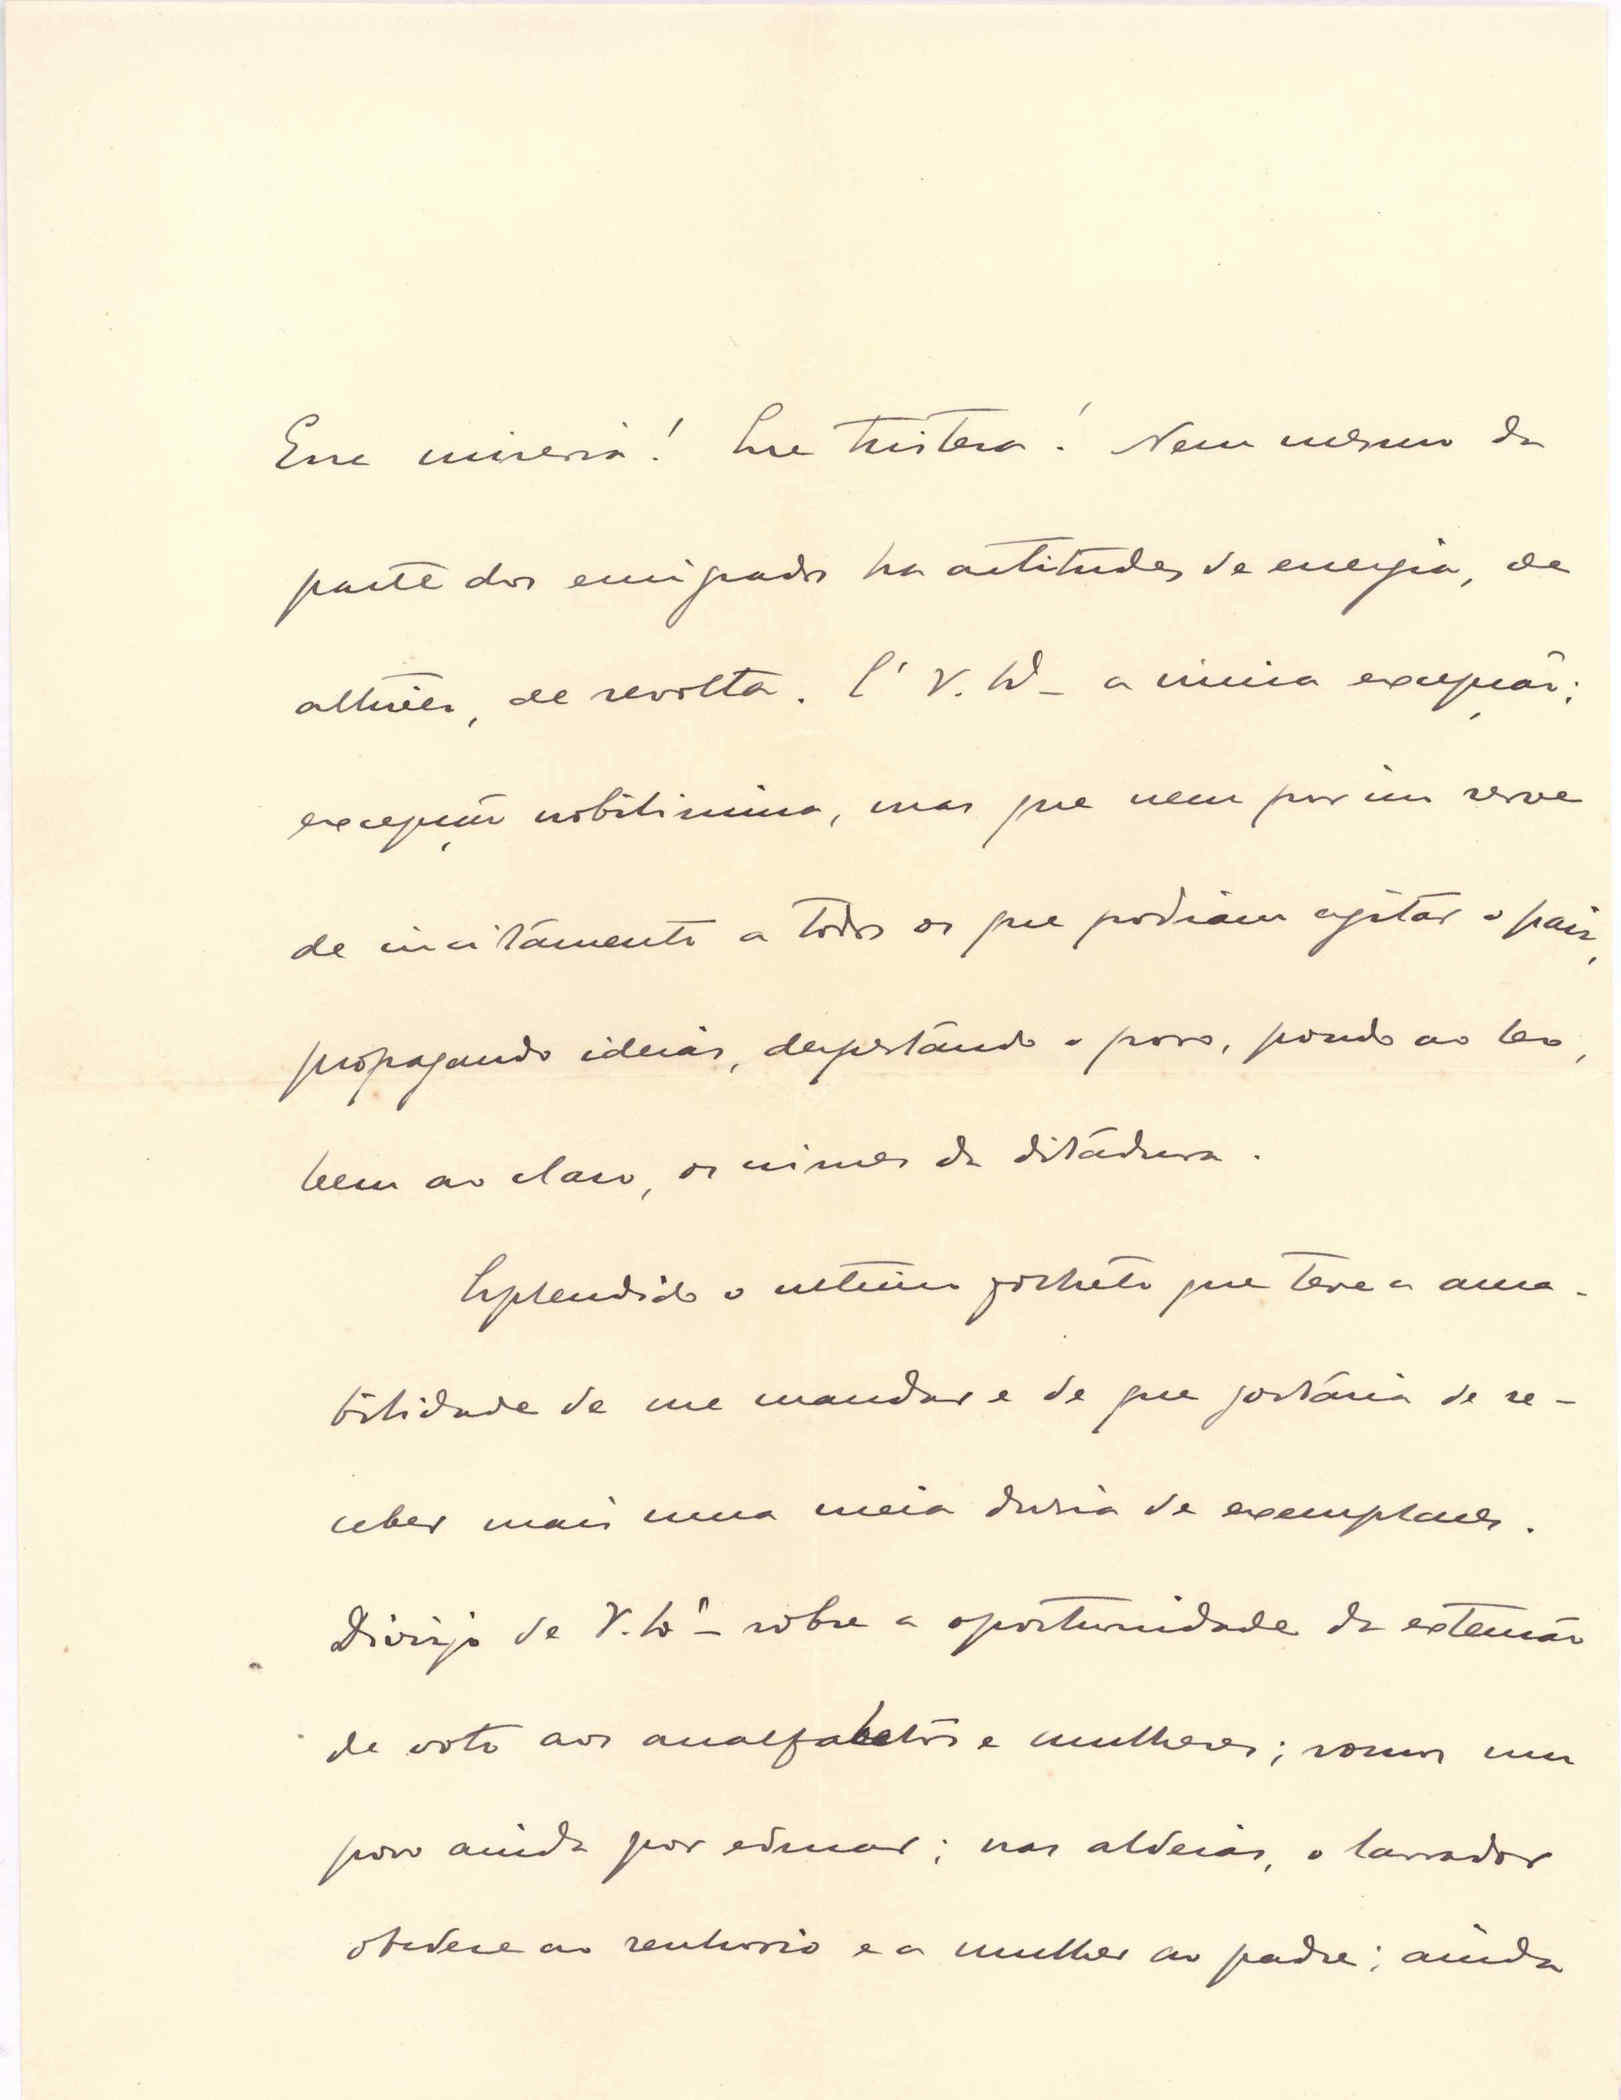 Que miseria! Que tristesa! Nem mesmo da
parte dos emigrados ha actitudes de energia, de
altivês, de revolta. É V. Ex.ª a unica excepção;
excepção nobilissima, mas que nem por isso serve
de incitamento a todos os que podiam agitar o pais,
propagando ideias, despertando o povo, pondo ao leo,
bem ao claro, os crimes da ditadura.
Esplendido o ultimo folheto que teve a ama-
bilidade de me mandar e de que gostaria de re-
ceber mais uma meia dusia de exemplares.
Divirjo de V. Ex.ª sobre a oportunidade da extensão
de voto aos analfabetos e mulheres; somos um
povo ainda por educar; nas aldeias, o lavrador
obedece ao senhorio e a mulher ao padre; ainda